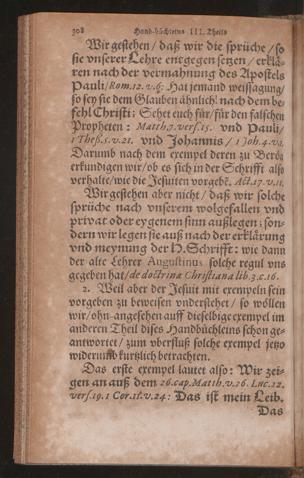 308 Hand-büchleins III. Theils
Wir gestehen / daß wir die sprüche / so
sie vnserer Lehre entgegen setzen / erklä-
ren nach der vermahnung des Apostels
Pauli / Rom. 12. v. 6: Hat jemand weissagung /
so sey sie dem Glauben ähnlich: nach dem be-
fehl Christi: Sehet euch für / für den falschen
Propheten: Matth. 7. vers. 15. vnd Pauli /
1 Theß. 5. v. 21. vnd Johannis / 1 Joh. 4. v. 1.
Darumb nach dem exempel deren zu Beröa
erkundigen wir / ob es sich in der Schrifft also
verhalte / wie die Jesuiten vorgebē. Act. 17. v. 11.
Wir gestehen aber nicht / daß wir solche
sprüche nach vnserem wolgefallen vnd
privat oder eygenem sinn außlegen: son-
dern wir legen sie auß nach der erklärung
vnd meynung der H. Schrifft: wie dann
der alte Lehrer Augustinus solche regul vns
gegeben hat / de doctrina Christiana lib. 3. c. 16.
2. Weil aber der Jesuit mit exempeln sein
vorgeben zu beweisen vnderstehet / so wöllen
wir / ohn-angesehen auff dieselbige exempel im
anderen Theil dises Handbüchleins schon ge-
antwortet / zum vberfluß solche exempel jetzo
widerumb kurtzlich betrachten.
Das erste exempel lautet also: Wir zei-
gen an auß dem 26. cap. Matth. v. 26. Luc. 22.
vers. 19. 1 Cor. 11. v. 24: Das ist mein Leib.
Das